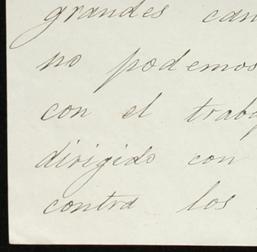 grandes can
no podemos
con el trab
dirigido con
contra los